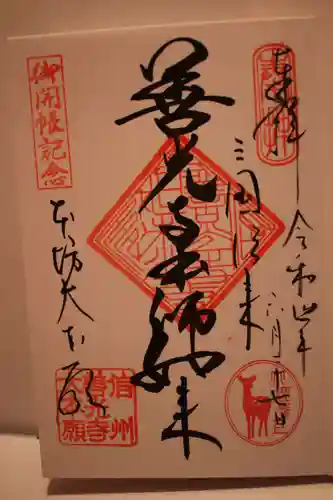 奉拝
令和四年
六月廿七日
三国伝来
善光寺本師如来
御開帳記念
本坊大本願
信州
善光寺
大本願